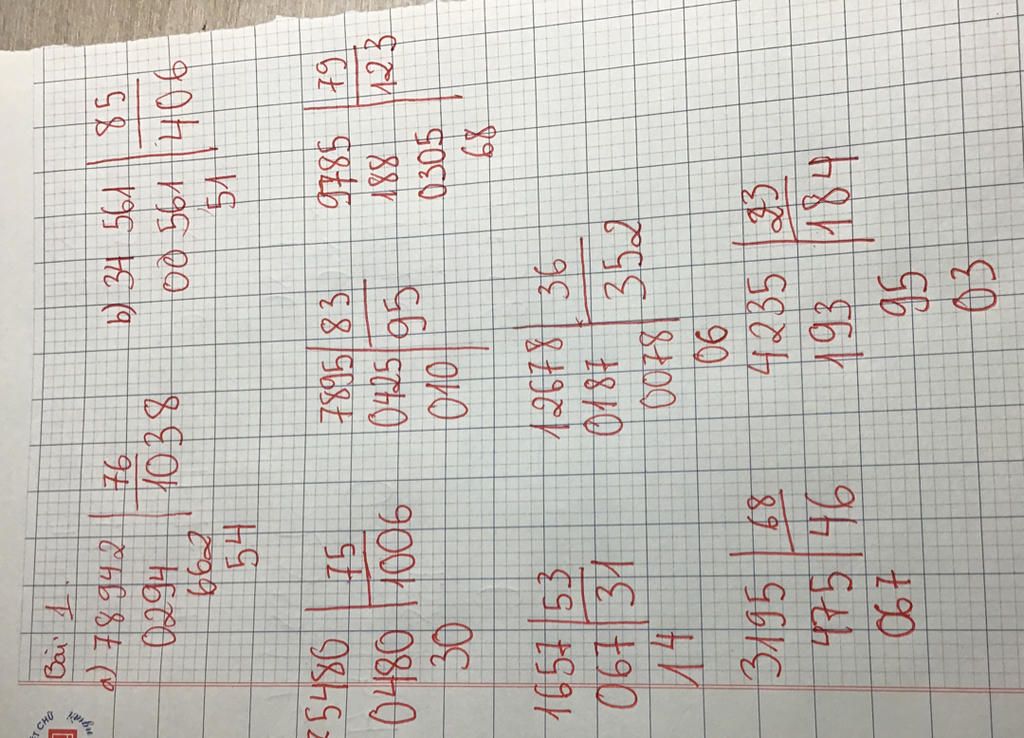 Bài 1.
a) 78942 76 b) 34 561 85
0294 1038 00 561 406
662 51
54
5480 75 7895 83 9785 79
0480 1006 0425 95 188 123
30 010 0305
68
1657 53 12678 36
067 31 0187 352
14 0078
06
3195 68 4235 23
475 46 193 184
067 95
03